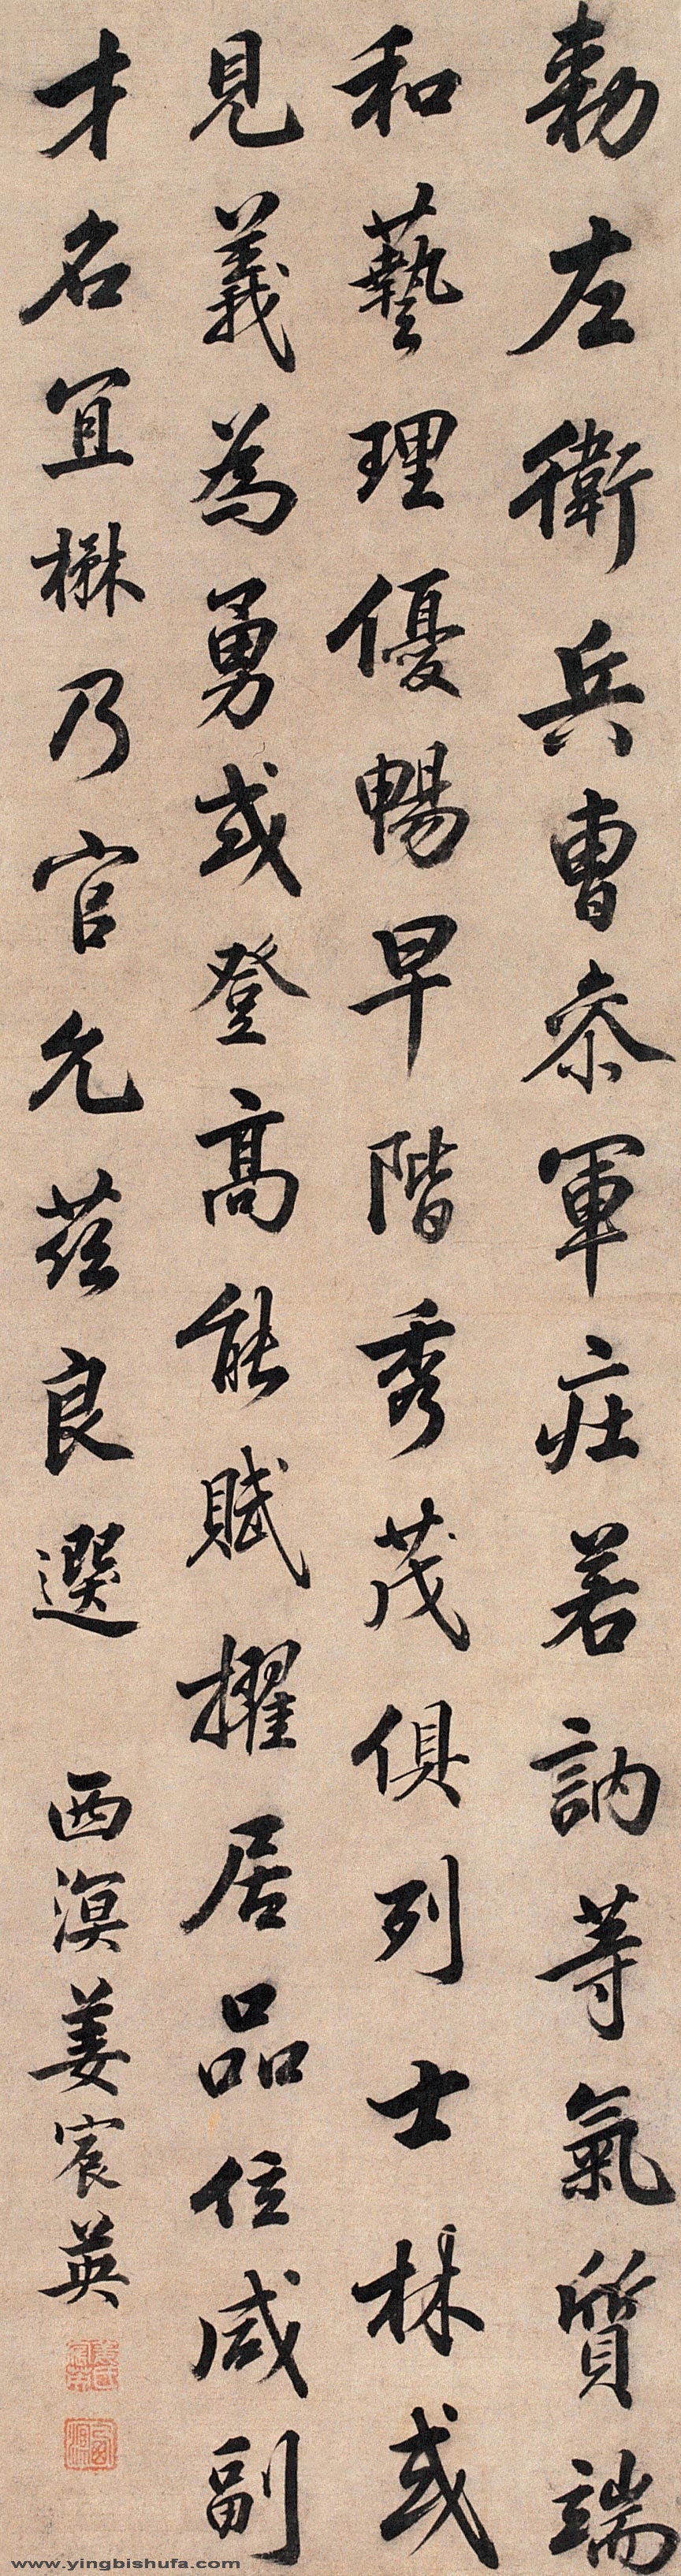 勅左衛兵曹叅軍莊若訥等氣質端
和藝理優暢早階秀茂俱列士林或
見義為勇或登高能賦擢居品位咸副
才名宜楙乃官允茲良選
西溟姜宸英
www.yingbishufa.com